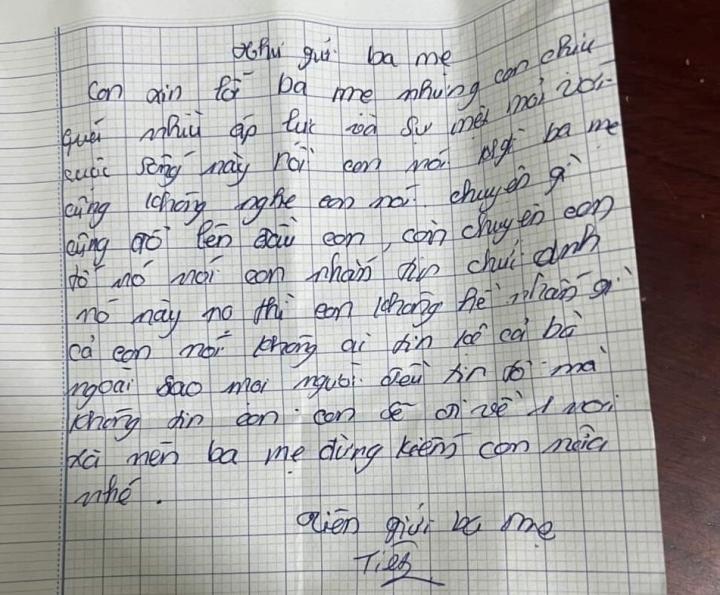 thư gửi ba mẹ
Con xin lỗi ba mẹ nhưng con chịu
quá nhiều áp lực và sự mệt mỏi với
cuộc sống này nói con nói gì ba mẹ
cũng không nghe con nói. chuyện gì
cũng đổ lên đầu con, còn chuyện con
nó nói con nhắn tin chửi anh
nó này nọ thì con không hề nhắn gì
cả con nói không ai tin kể cả bà
ngoại sao mọi người đều tin mà
không tin con. con sẽ đi về 1 nơi
xa nên ba mẹ đừng kiếm con nữa
nhé.
gửi ba mẹ